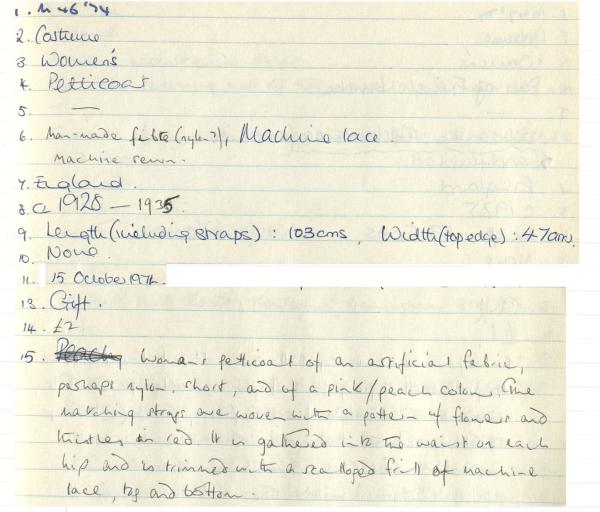 1. M 46'74
2. Costume
3. Women's
4. Petticoat
5. —
6. Man-made fabric (nylon?), Machine lace.
machine sewn.
7. England.
8. C 1928 — 1935.
9. Length (including straps) : 103cms, Width (top edge) : 47cm.
10. None.
11. 15 October 1974.
13. Gift.
14. £2
15. Woman's petticoat of an artificial fabric,
perhaps nylon, short, and of a pink/peach colour. The
matching straps are woven with a pattern of flowers and
thistles in red. It is gathered into the waist on each
hip and is trimmed with a scalloped frill of machine
lace, top and bottom.